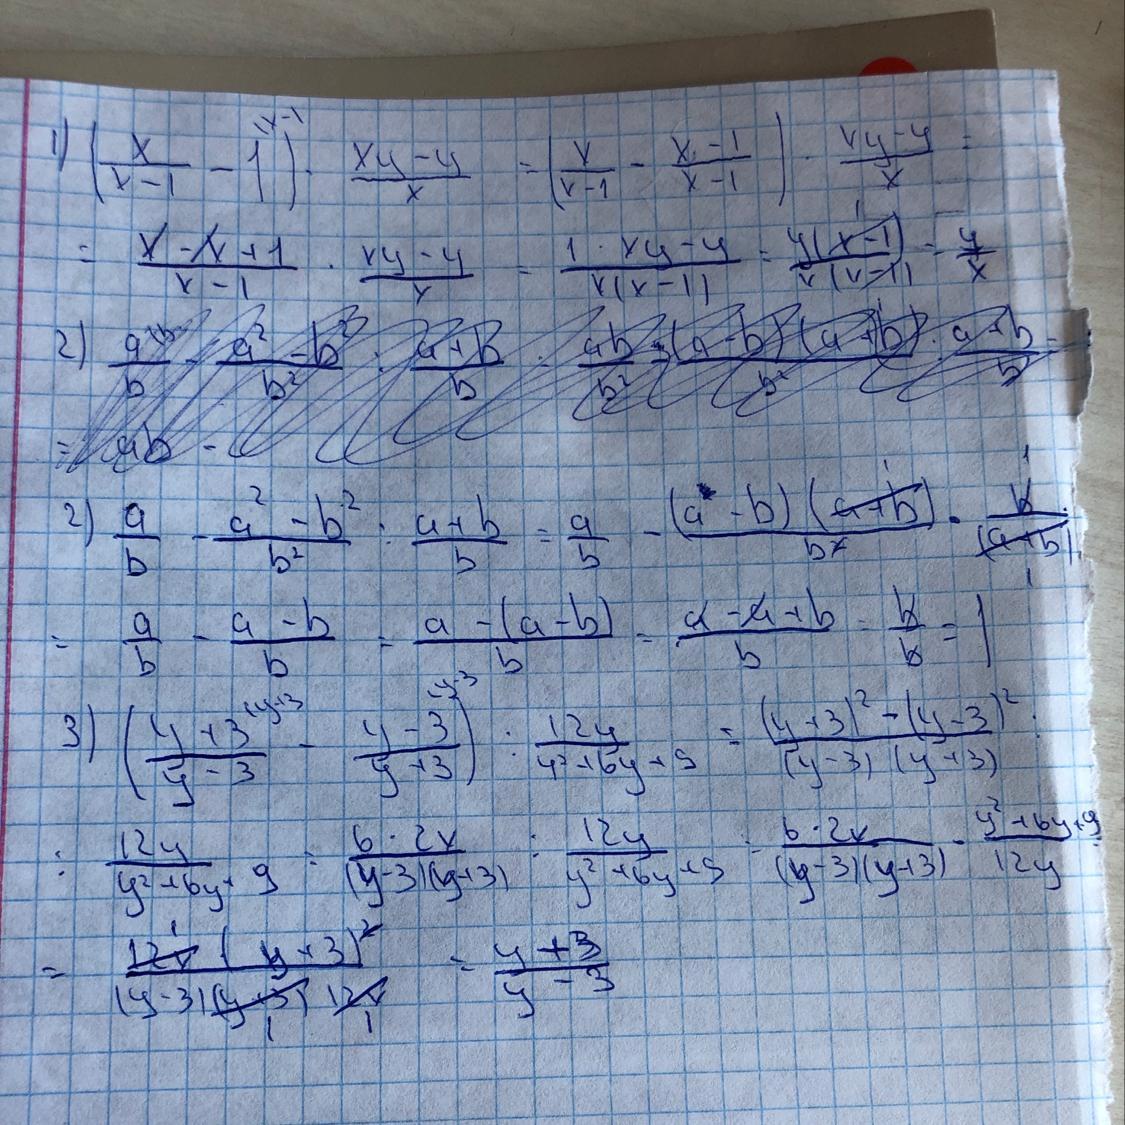 1) (x/(x-1) - 1^(x-1)) · (xy-y)/x = (x/(x-1) - (x-1)/(x-1)) · (xy-y)/x =
= (x-x+1)/(x-1) · (xy-y)/x = (1·xy-y)/(x(x-1)) = y(x-1)/(x(x-1)) = y/x
2) a/b - (a²-b²)/b² : (a+b)/b = a/b - (a-b)(a+b)/b² · b/(a+b)
= a/b - (a-b)/b = (a-(a-b))/b = (a-a+b)/b = b/b = 1
3) ((y+3)/(y-3) - (y-3)/(y+3)) : 12y/(y²+6y+9) = ((y+3)²-(y-3)²)/((y-3)(y+3)) :
: 12y/(y²+6y+9) = 6·2x/((y-3)(y+3)) : 12y/(y²+6y+9) = 6·2x/((y-3)(y+3)) · (y²+6y+9)/12y
= 12y(y+3)²/((y-3)(y+3)12y) = (y+3)/(y-3)